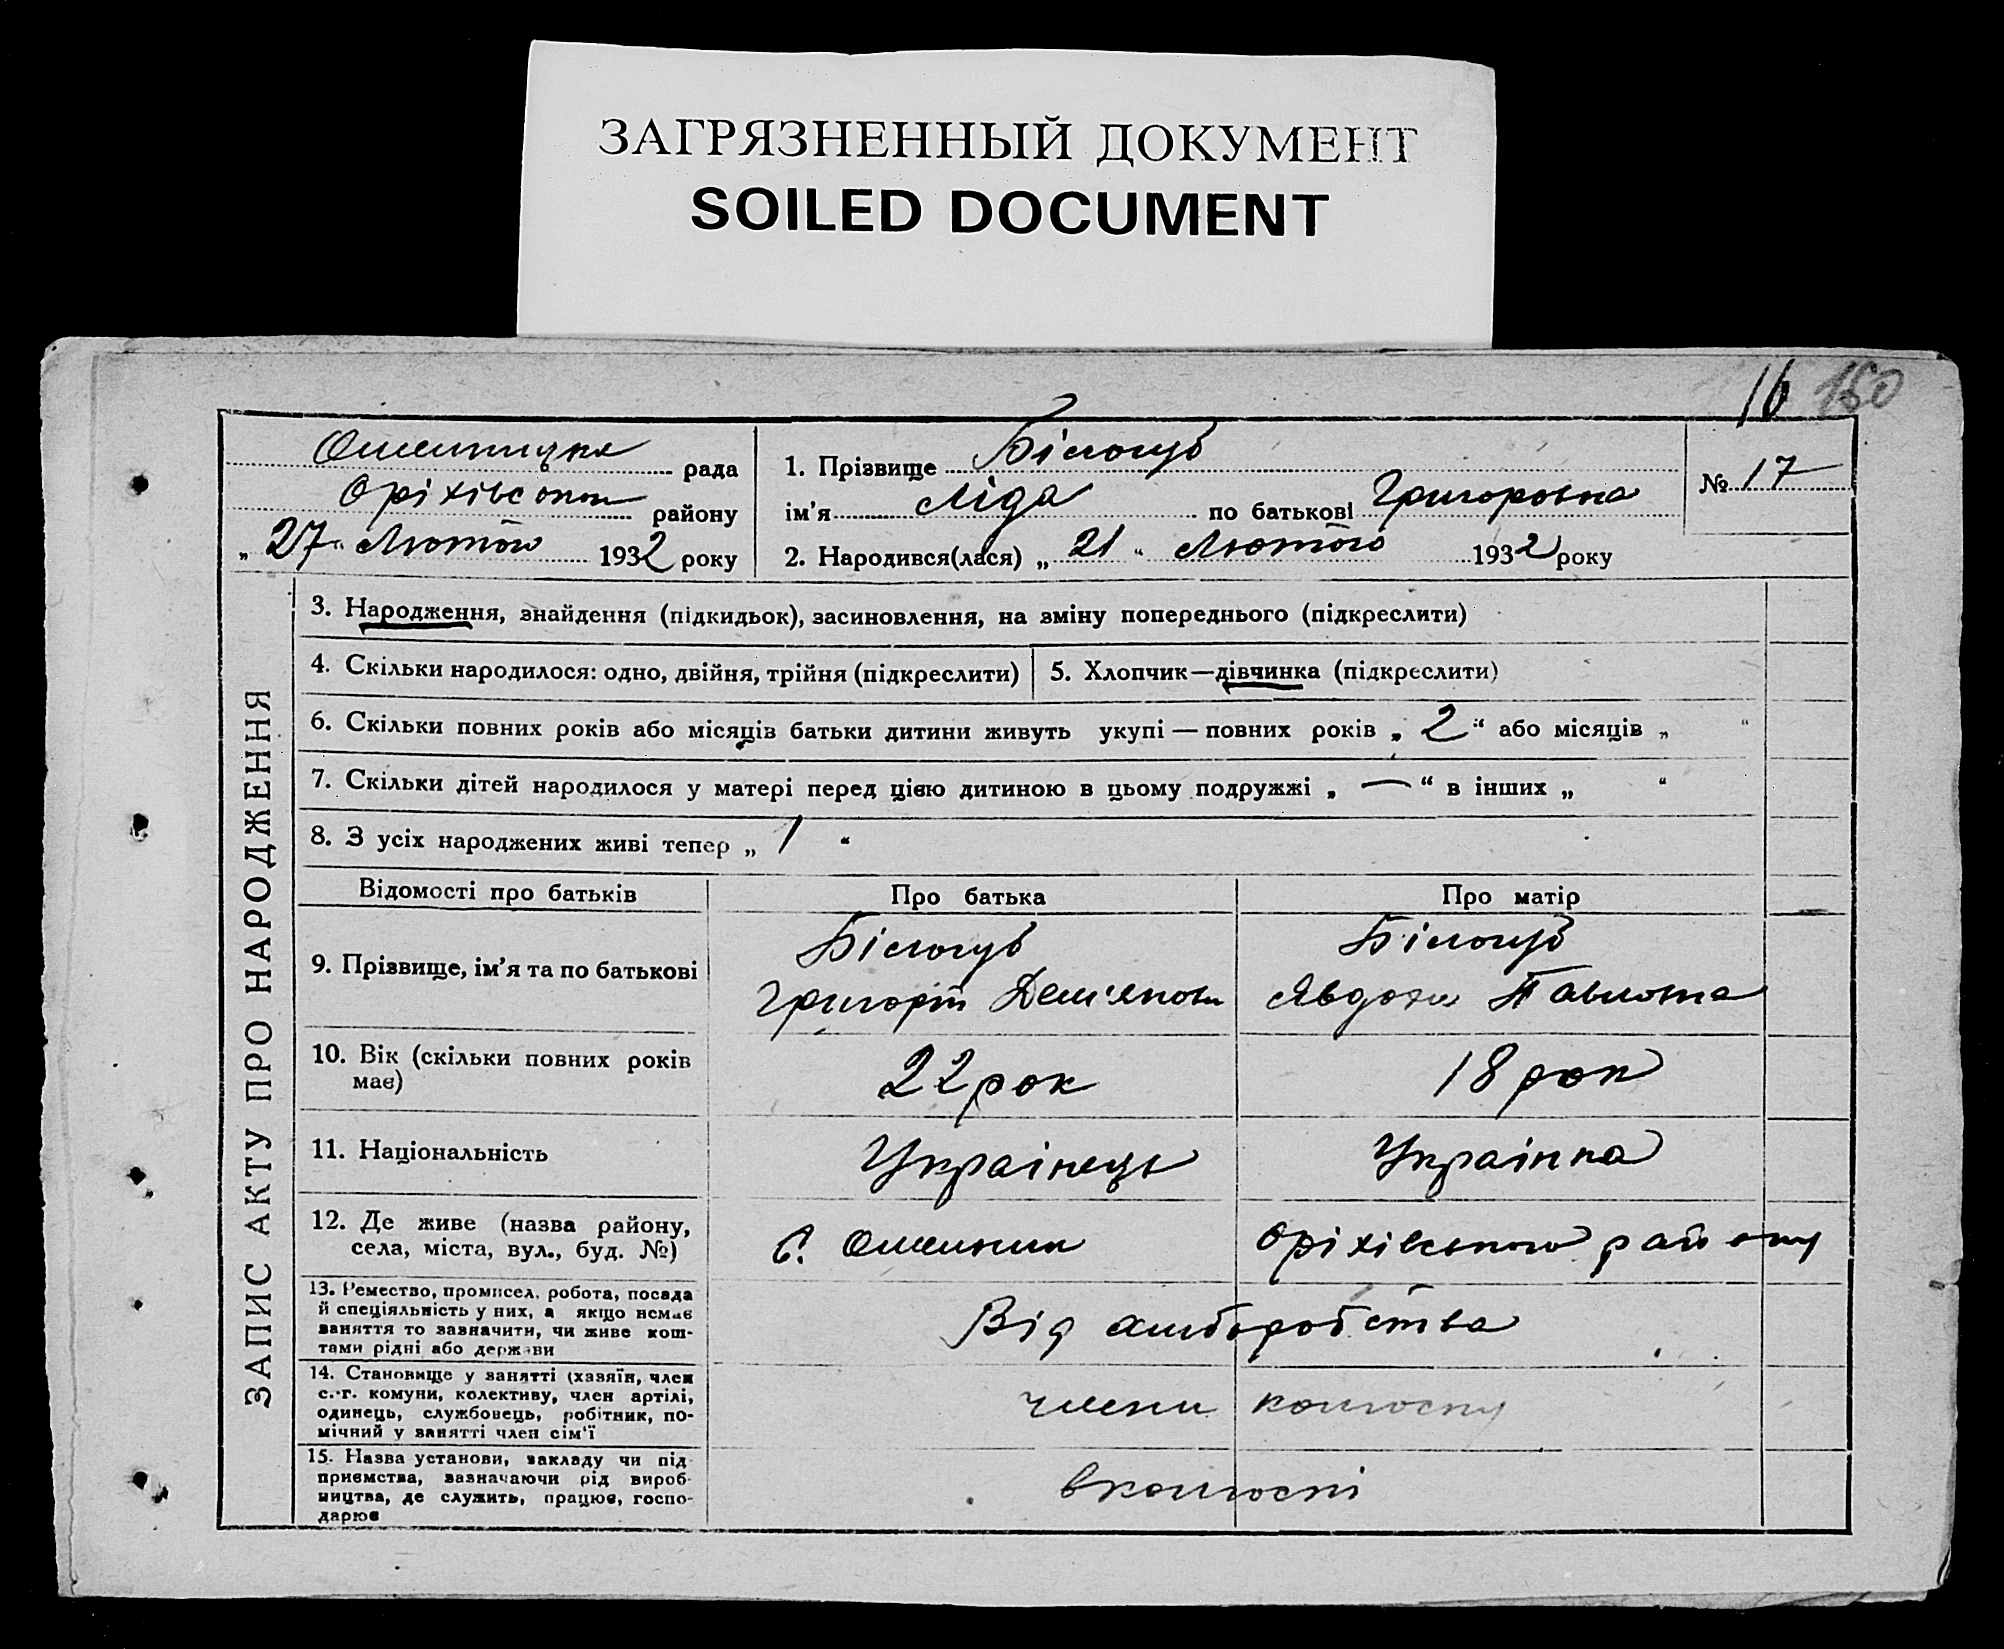 ЗАГРЯЗНЕННЫЙ ДОКУМЕНТ
SOILED DOCUMENT
16 150
рада
району
„ 27 " Лютого 1932 року
1. Прізвище Білогуб
ім'я Ліда по батькові Григоровна
2. Народився(лася) „ 21 " Лютого 1932 року
№ 17
ЗАПИС АКТУ ПРО НАРОДЖЕННЯ
3. Народження, знайдення (підкидьок), засиновлення, на зміну попереднього (підкреслити)
4. Скільки народилося: одно, двійня, трійня (підкреслити)
5. Хлопчик—дівчинка (підкреслити)
6. Скільки повних років або місяців батьки дитини живуть укупі — повних років „ 2 " або місяців „ "
7. Скільки дітей народилося у матері перед цією дитиною в цьому подружжі „ — " в інших „ "
8. З усіх народжених живі тепер „ 1 "
Відомості про батьків
Про батька
Про матір
9. Прізвище, ім'я та по батькові
Білогуб
Григорій
Білогуб
Явдоха Павловна
10. Вік (скільки повних років
має)
22 рок
18 рок
11. Національність
Українець
Українка
12. Де живе (назва району,
села, міста, вул., буд. №)
с.
Оріхівського району
13. Ремество, промисел, робота, посада
й спеціяльність у них, а якщо немає
заняття то зазначити, чи живе кош-
тами рідні або держави
Від хліборобства
14. Становище у занятті (хазяїн, член
с.-г. комуни, колективу, член артілі,
одинець, службовець, робітник, по-
мічний у занятті член сім'ї
члени колгоспу
15. Назва установи, закладу чи під
приємства, зазначаючи рід вироб-
ництва, де служить, працює, госпо-
дарює
в колгоспі